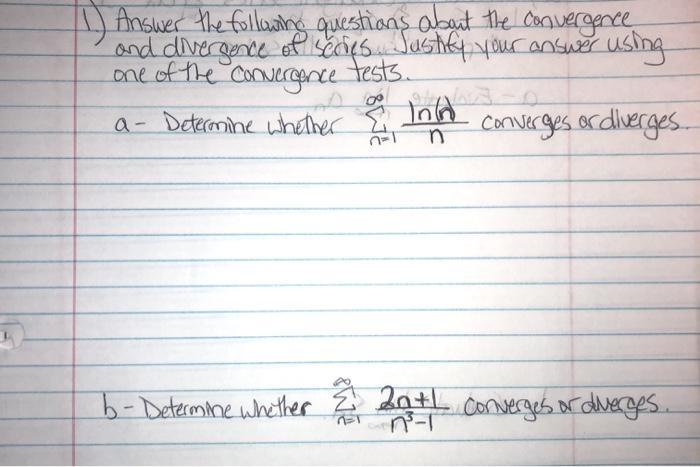 1.) Answer the following questions about the convergence
and divergence of series. Justify your answer using
one of the convergence tests.
a- Determine whether ∞Σn=1 ln(n)/n converges or diverges.
b- Determine whether ∞Σn=1 2n+1/n³-1 converges or diverges.